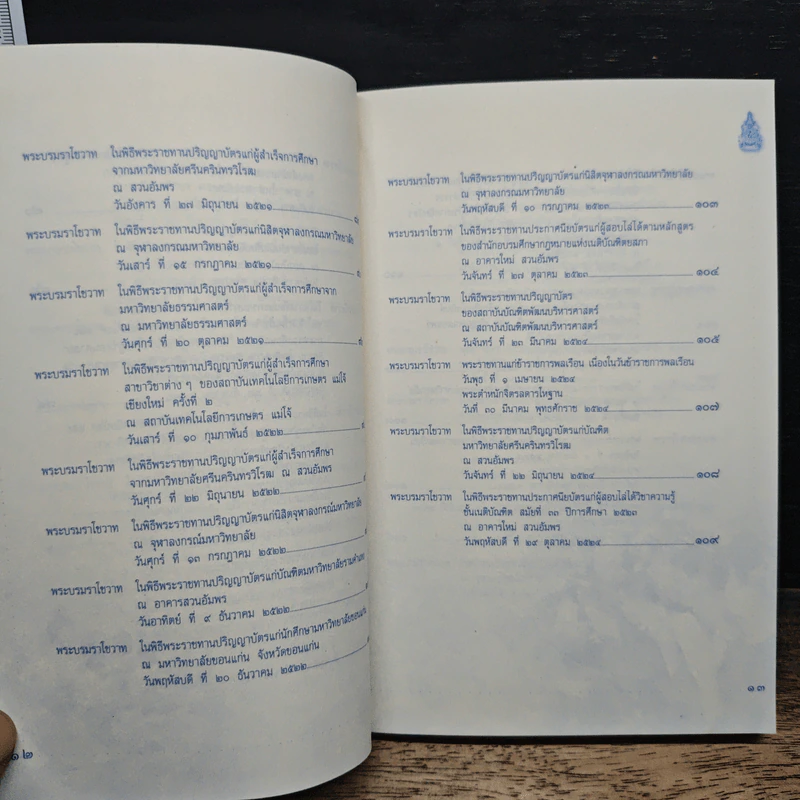 พระบรมราโชวาท ในพิธีพระราชทานปริญญาบัตรแก่ผู้สำเร็จการศึกษา
จากมหาวิทยาลัยศรีนครินทรวิโรฒ
ณ สวนอัมพร
วันอังคาร ที่ ๒๗ มิถุนายน ๒๕๒๑
พระบรมราโชวาท ในพิธีพระราชทานปริญญาบัตรแก่นิสิตจุฬาลงกรณ์มหาวิทยาลัย
ณ จุฬาลงกรณ์มหาวิทยาลัย
วันเสาร์ ที่ ๑๕ กรกฎาคม ๒๕๒๑
พระบรมราโชวาท ในพิธีพระราชทานปริญญาบัตรแก่ผู้สำเร็จการศึกษาจาก
มหาวิทยาลัยธรรมศาสตร์
ณ มหาวิทยาลัยธรรมศาสตร์
วันศุกร์ ที่ ๒๐ ตุลาคม ๒๕๒๑
พระบรมราโชวาท ในพิธีพระราชทานปริญญาบัตรแก่ผู้สำเร็จการศึกษา
สาขาวิชาต่าง ๆ ของสถาบันเทคโนโลยีการเกษตร แม่โจ้
เชียงใหม่ ครั้งที่ ๒
ณ สถาบันเทคโนโลยีการเกษตร แม่โจ้
วันเสาร์ ที่ ๑๐ กุมภาพันธ์ ๒๕๒๒
พระบรมราโชวาท ในพิธีพระราชทานปริญญาบัตรแก่ผู้สำเร็จการศึกษา
จากมหาวิทยาลัยศรีนครินทรวิโรฒ ณ สวนอัมพร
วันศุกร์ ที่ ๒๒ มิถุนายน ๒๕๒๒
พระบรมราโชวาท ในพิธีพระราชทานปริญญาบัตรแก่นิสิตจุฬาลงกรณ์มหาวิทยาลัย
ณ จุฬาลงกรณ์มหาวิทยาลัย
วันศุกร์ ที่ ๑๓ กรกฎาคม ๒๕๒๒
พระบรมราโชวาท ในพิธีพระราชทานปริญญาบัตรแก่บัณฑิตมหาวิทยาลัยรามคำแหง
ณ อาคารสวนอัมพร
วันอาทิตย์ ที่ ๙ ธันวาคม ๒๕๒๒
พระบรมราโชวาท ในพิธีพระราชทานปริญญาบัตรแก่นักศึกษามหาวิทยาลัยขอนแก่น
ณ มหาวิทยาลัยขอนแก่น จังหวัดขอนแก่น
วันพฤหัสบดี ที่ ๒๐ ธันวาคม ๒๕๒๒
๑๒
พระบรมราโชวาท ในพิธีพระราชทานปริญญาบัตรแก่นิสิตจุฬาลงกรณมหาวิทยาลัย
ณ จุฬาลงกรณมหาวิทยาลัย
วันพฤหัสบดี ที่ ๑๐ กรกฎาคม ๒๕๒๓ ๑๐๓
พระบรมราโชวาท ในพิธีพระราชทานประกาศนียบัตรแก่ผู้สอบไล่ได้ตามหลักสูตร
ของสำนักอบรมศึกษากฎหมายแห่งเนติบัณฑิตยสภา
ณ อาคารใหม่ สวนอัมพร
วันจันทร์ ที่ ๒๗ ตุลาคม ๒๕๒๓ ๑๐๔
พระบรมราโชวาท ในพิธีพระราชทานปริญญาบัตร
ของสถาบันบัณฑิตพัฒนบริหารศาสตร์
ณ สถาบันบัณฑิตพัฒนบริหารศาสตร์
วันจันทร์ ที่ ๒๓ มีนาคม ๒๕๒๔ ๑๐๕
พระบรมราโชวาท พระราชทานแก่ข้าราชการพลเรือน เนื่องในวันข้าราชการพลเรือน
วันพุธ ที่ ๑ เมษายน ๒๕๒๔
พระตำหนักจิตรลดารโหฐาน
วันที่ ๓๐ มีนาคม พุทธศักราช ๒๕๒๔ ๑๐๗
พระบรมราโชวาท ในพิธีพระราชทานปริญญาบัตรแก่บัณฑิต
มหาวิทยาลัยศรีนครินทรวิโรฒ
ณ สวนอัมพร
วันจันทร์ ที่ ๒๒ มิถุนายน ๒๕๒๔ ๑๐๘
พระบรมราโชวาท ในพิธีพระราชทานประกาศนียบัตรแก่ผู้สอบไล่ได้วิชาความรู้
ชั้นเนติบัณฑิต สมัยที่ ๓๓ ปีการศึกษา ๒๕๒๓
ณ อาคารใหม่ สวนอัมพร
วันพฤหัสบดี ที่ ๒๙ ตุลาคม ๒๕๒๔ ๑๐๙
๑๓